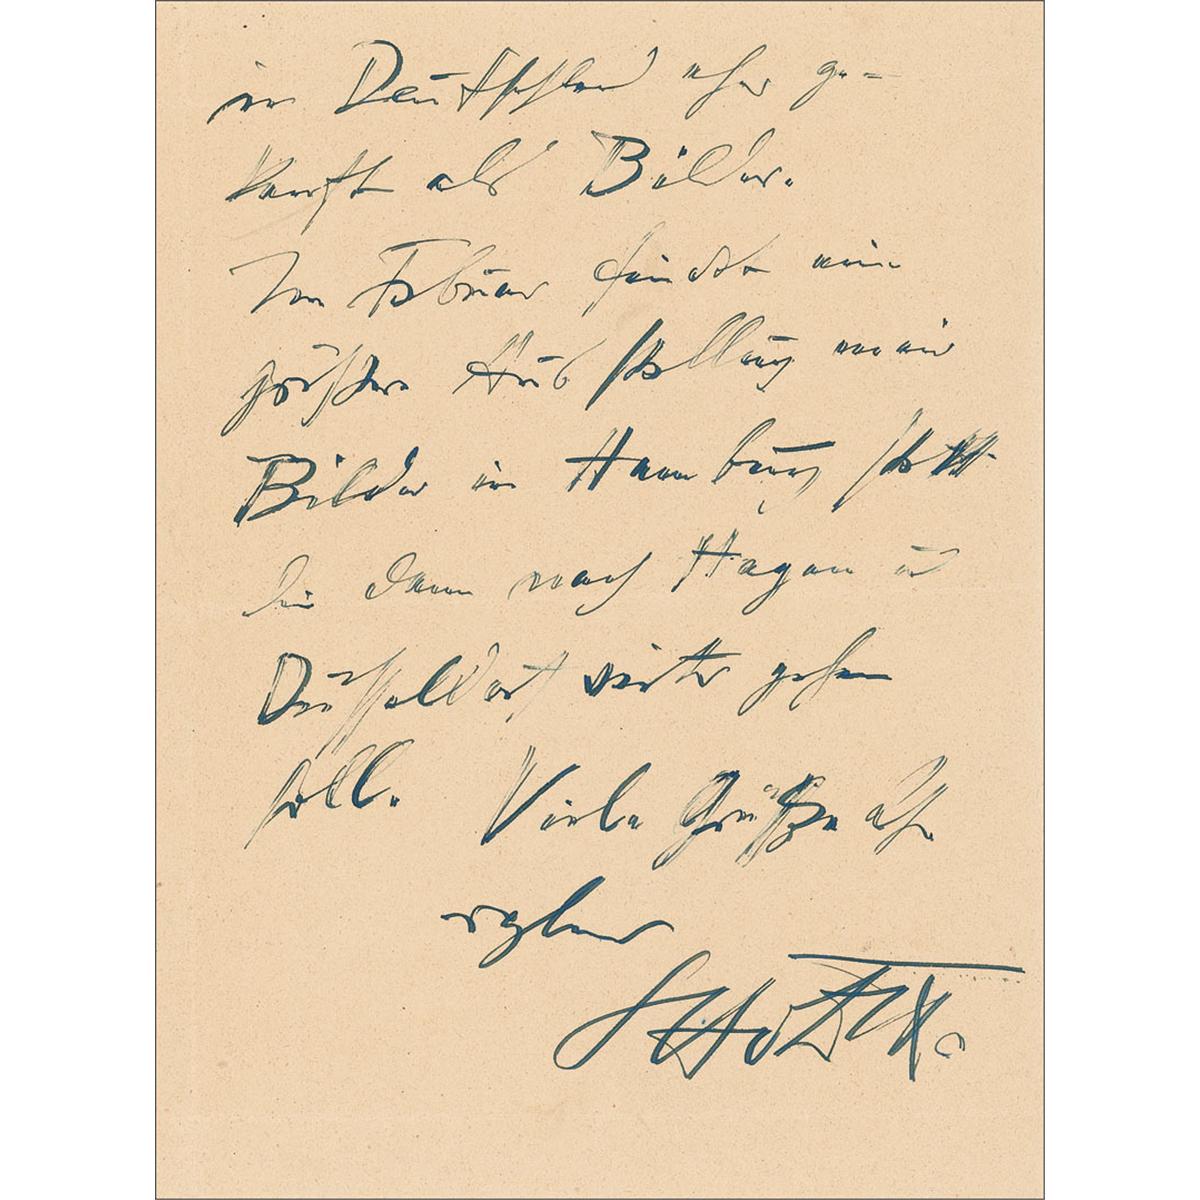 in Deutschland eher ge-
kauft als Bilder.
Im Februar findet eine
größere Ausstellung meiner
Bilder in Hamburg statt
die dann nach Hagen u
Düsseldorf weiter gehen
soll. Viele Grüße
Otto Dix